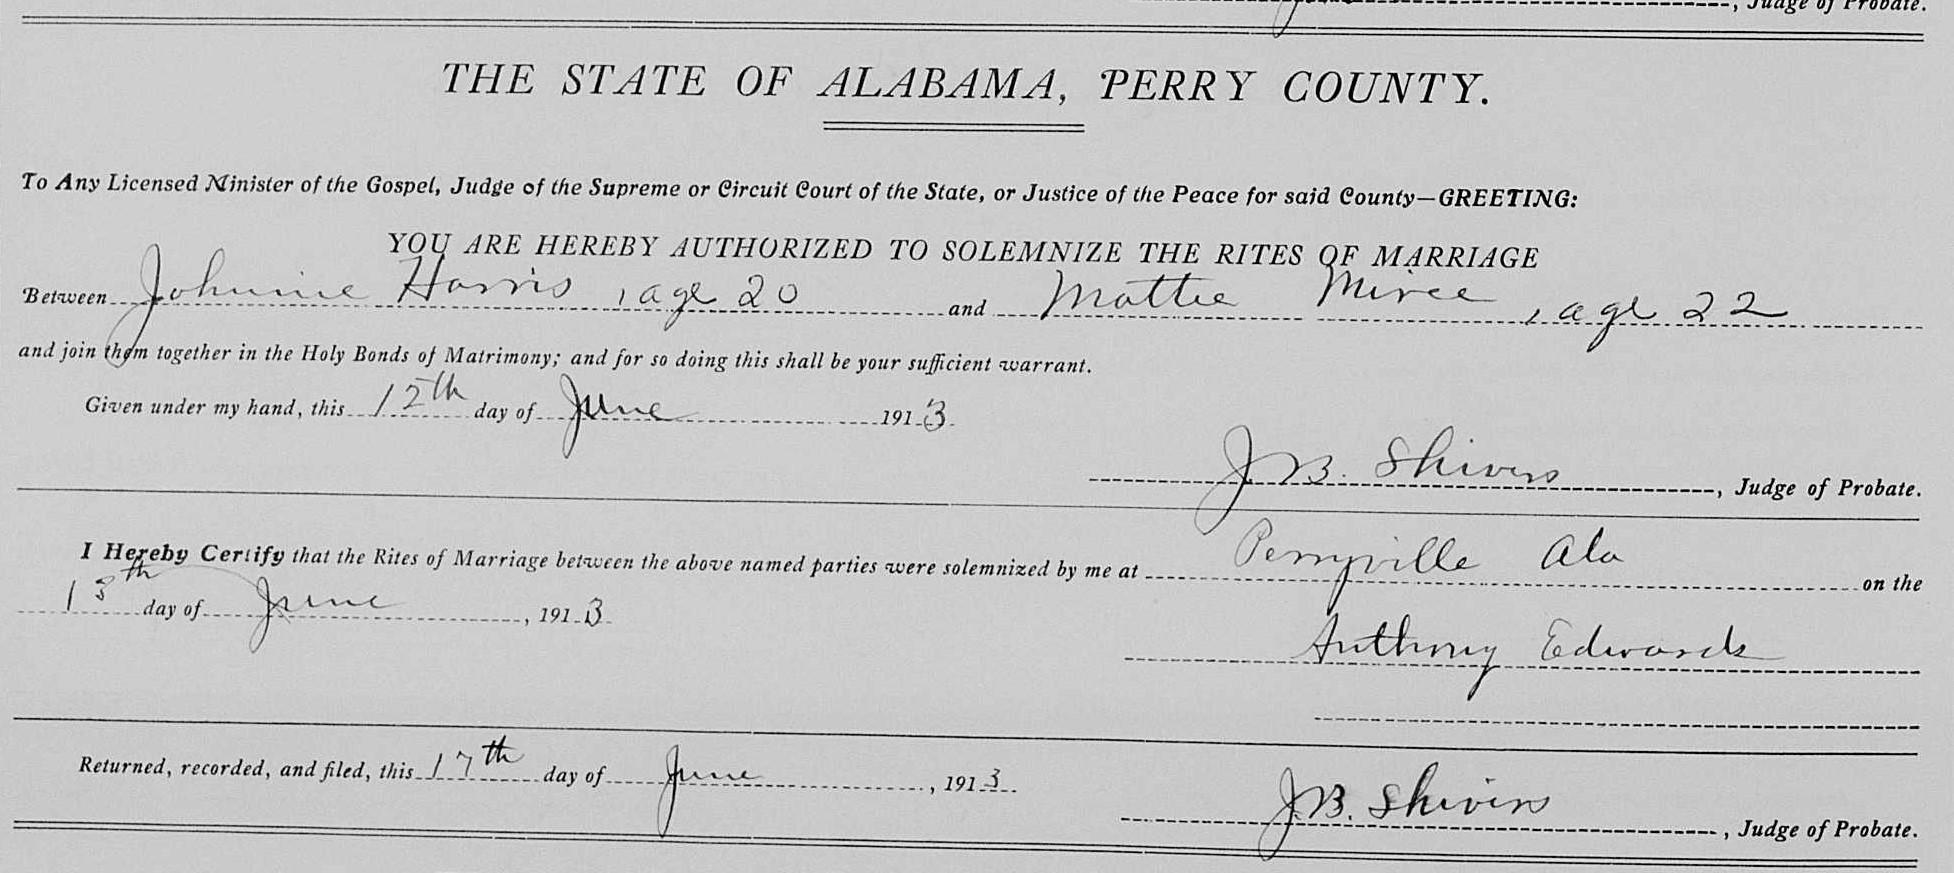 , Judge of Probate.
THE STATE OF ALABAMA, PERRY COUNTY.
To Any Licensed Minister of the Gospel, Judge of the Supreme or Circuit Court of the State, or Justice of the Peace for said County—GREETING:
YOU ARE HEREBY AUTHORIZED TO SOLEMNIZE THE RITES OF MARRIAGE
Between Johnnie Harris, age 20 and Mattie Miree, age 22
and join them together in the Holy Bonds of Matrimony; and for so doing this shall be your sufficient warrant.
Given under my hand, this 12th day of June 1913
J.B. Shivers, Judge of Probate.
I Hereby Certify that the Rites of Marriage between the above named parties were solemnized by me at Perryville Ala on the
13th day of June, 1913
Anthony Edwards
Returned, recorded, and filed, this 17th day of June, 1913
J.B. Shivers, Judge of Probate.